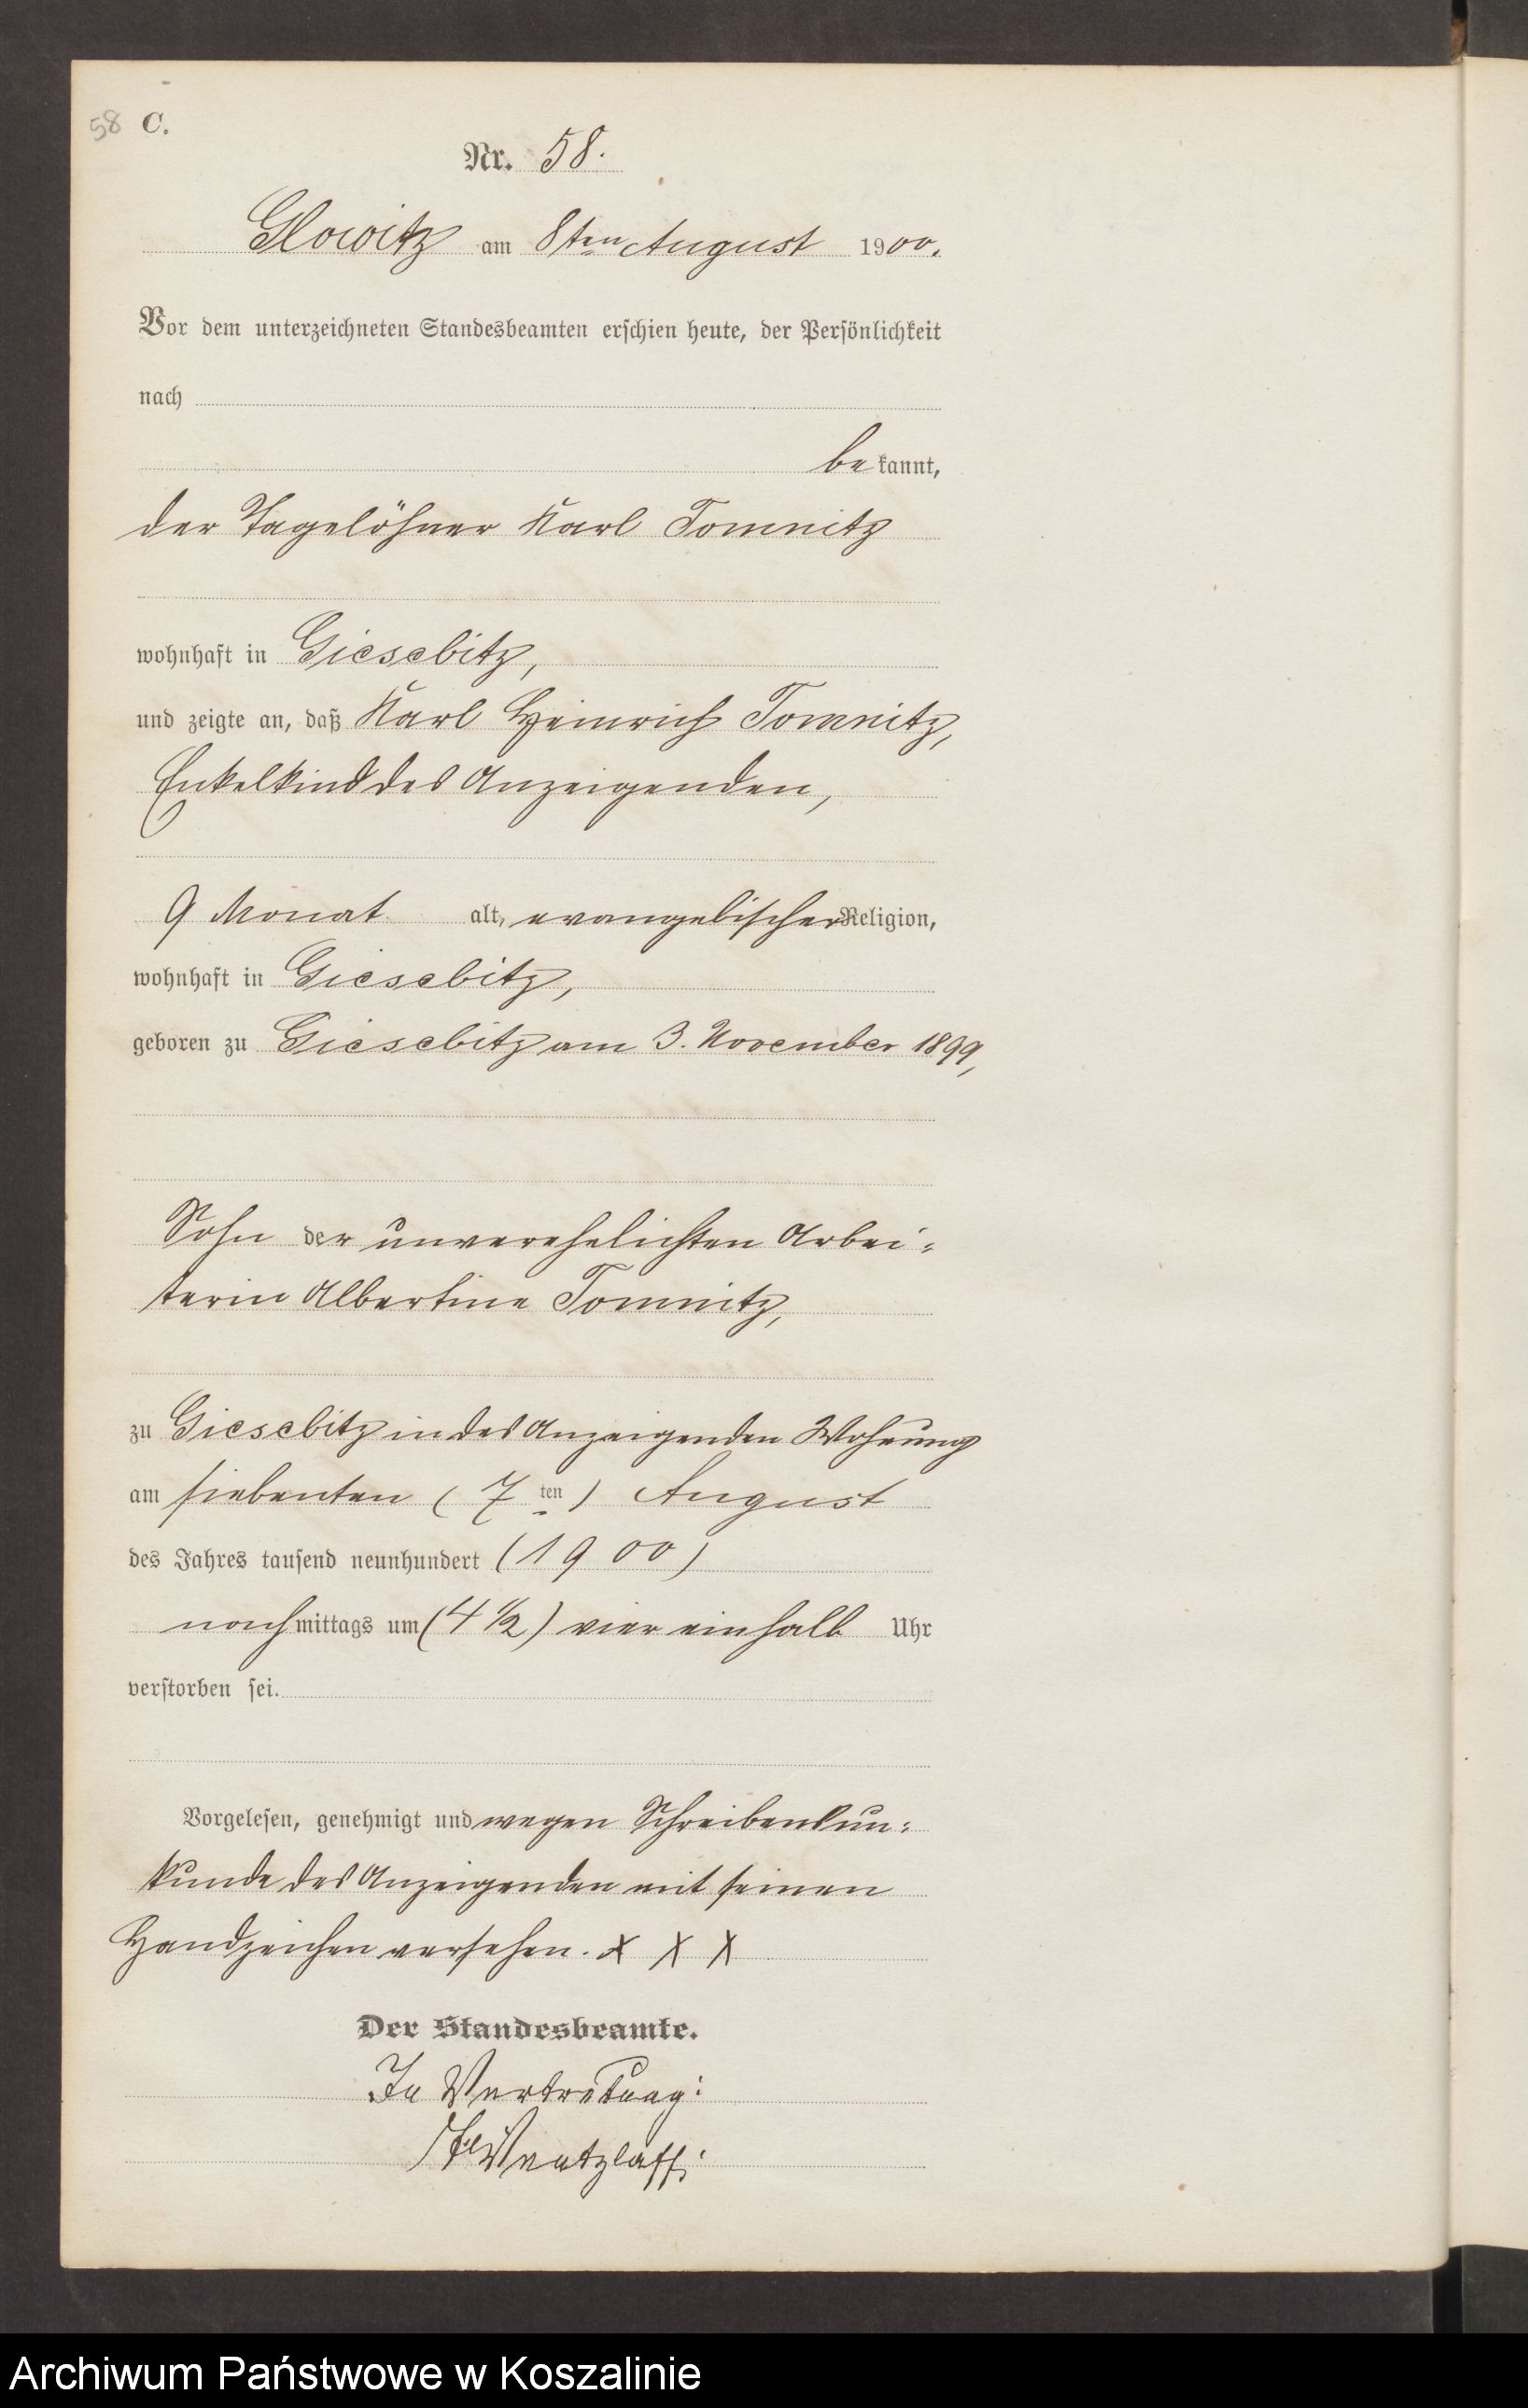 58 C.
Nr. 58.
Glowitz am 8ten August 1900.
Vor dem unterzeichneten Standesbeamten erschien heute, der Persönlichkeit
nach
bekannt,
der Tagelöhner Karl Tomnitz
wohnhaft in Giesebitz,
und zeigte an, daß Karl Heinrich Tomnitz,
Enkelkind des Anzeigenden,
9 Monat alt, evangelischer Religion,
wohnhaft in Giesebitz,
geboren zu Giesebitz am 3. November 1899,
Sohn der unverehelichten Arbei-
terin Albertine Tomnitz,
zu Giesebitz in des Anzeigenden Wohnung
am siebenten (7ten) August
des Jahres tausend neunhundert (1900)
nachmittags um (4 1/2) vier einhalb Uhr
verstorben sei.
Vorgelesen, genehmigt und wegen Schreibensun-
kunde des Anzeigenden mit seinen
Handzeichen versehen. X X X
Der Standesbeamte.
In Vertretung:
Wentzlaff.
Archiwum Państwowe w Koszalinie